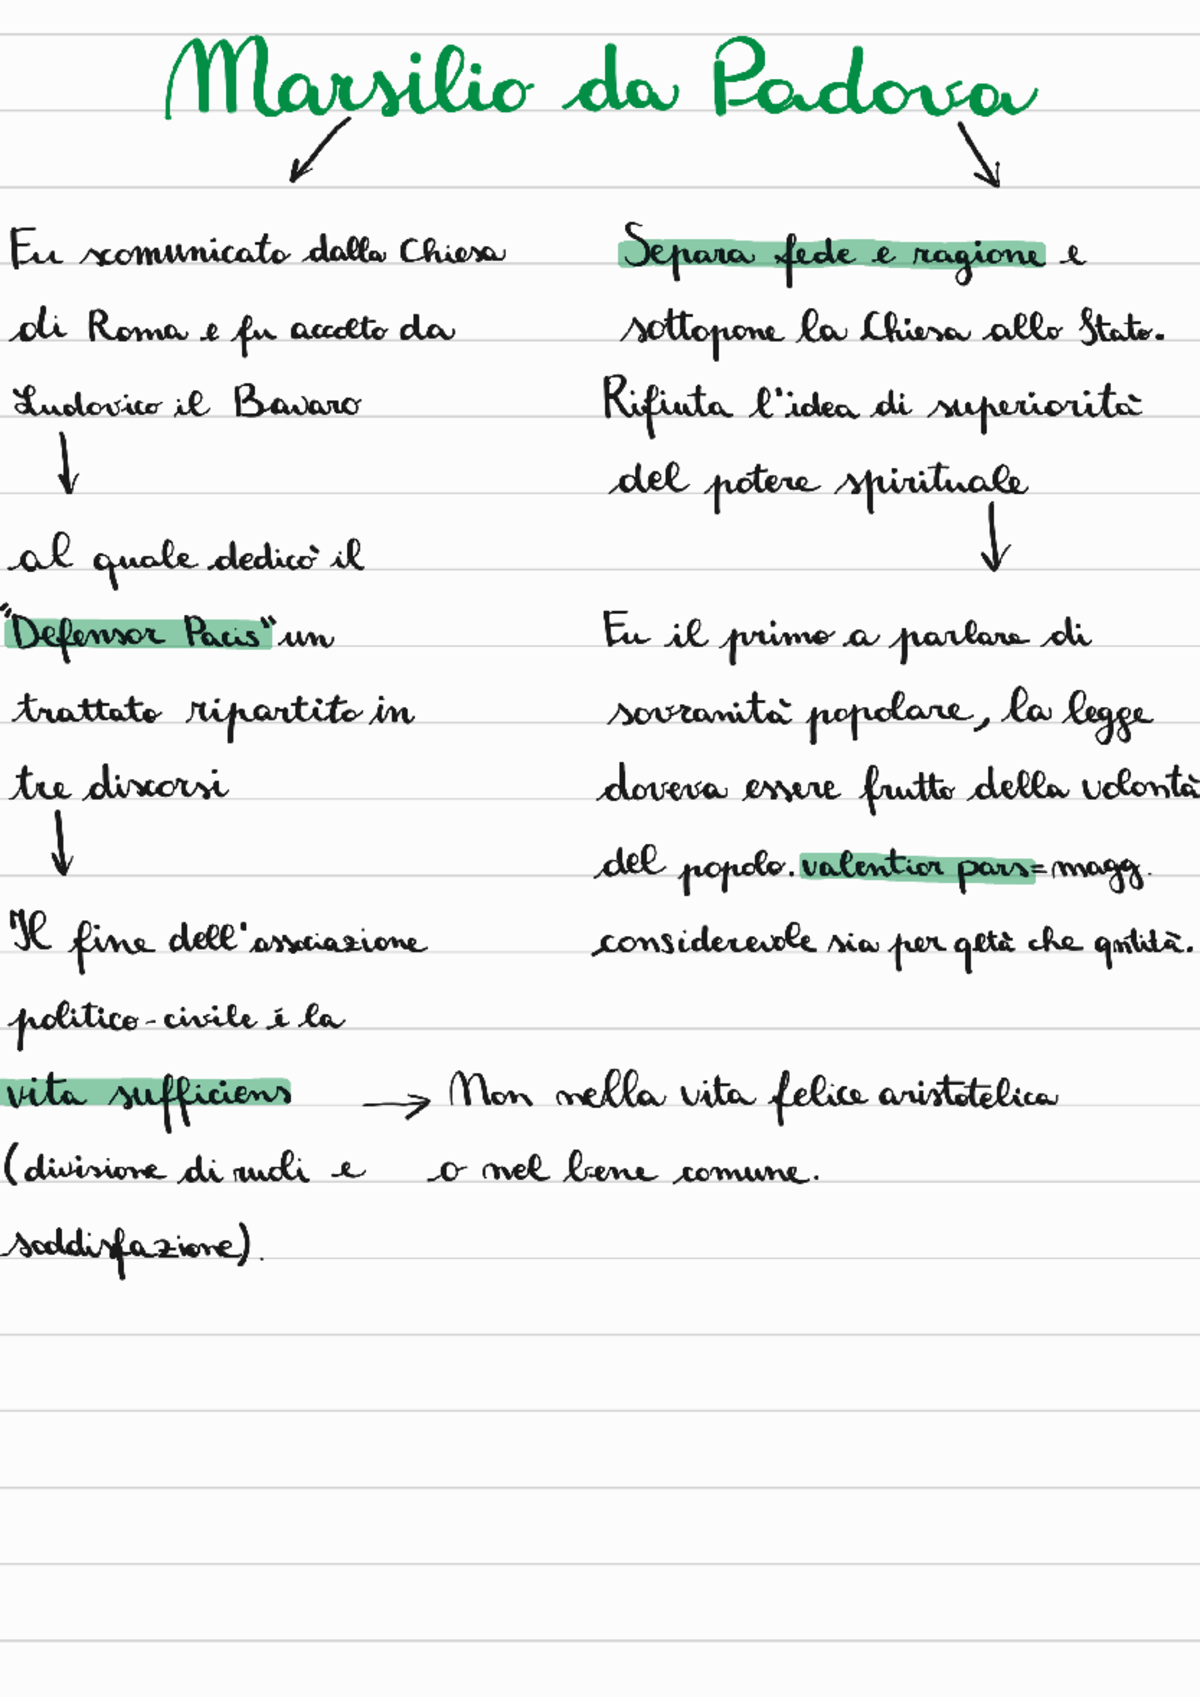 Marsilio da Padova
Fu scomunicato dalla Chiesa
di Roma e fu accolto da
Ludovico il Bavaro
al quale dedicò il
"Defensor Pacis" un
trattato ripartito in
tre discorsi
Il fine dell'associazione
politico-civile è la
vita sufficiens
(divisione di ruoli e
soddisfazione).
Non nella vita felice aristotelica
o nel bene comune.
Separa fede e ragione e
sottopone la Chiesa allo Stato.
Rifiuta l'idea di superiorità
del potere spirituale
Fu il primo a parlare di
sovranità popolare, la legge
doveva essere frutto della volontà
del popolo. valentior pars = magg.
considerevole sia per qltà che qntità.